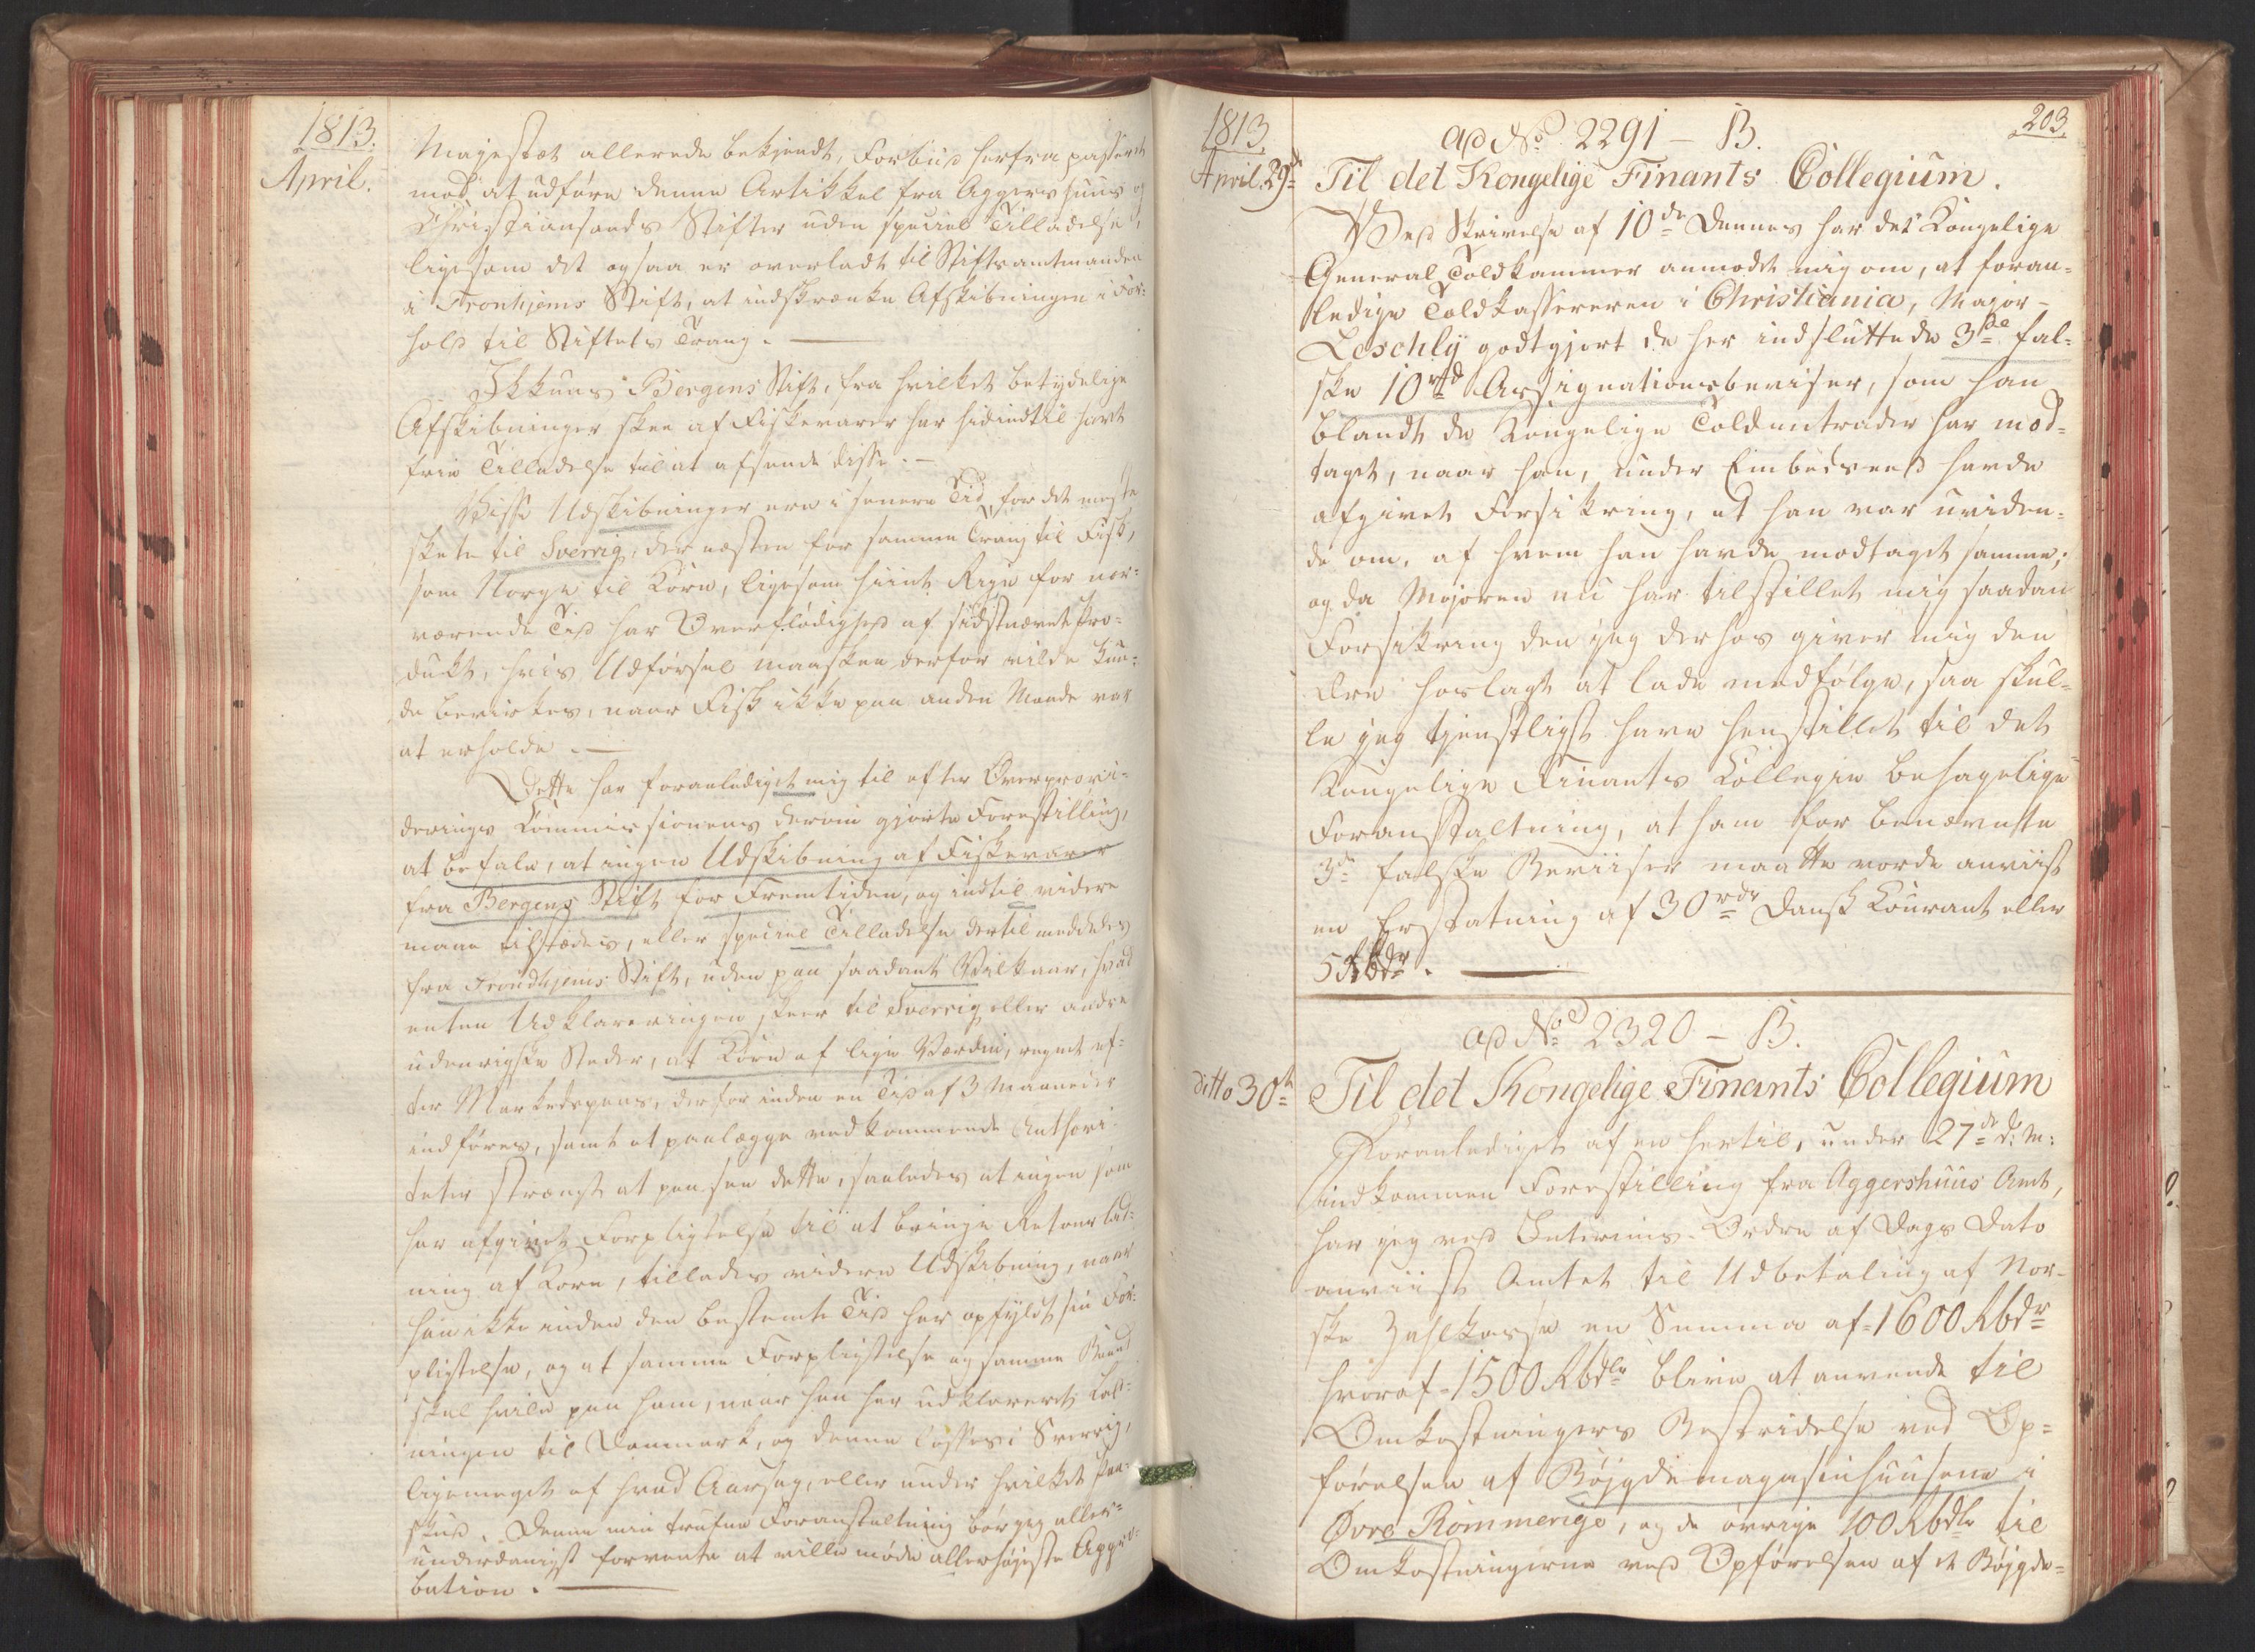 1813.
April.
Majestæt allerede bekjendt, Forbud herfra passeret
mod at udføre denne Artikkel fra Aggershuus og
Christiansands Stifter uden speciel Tilladelse,
ligesom det ogsaa er overladt til Stiftsamtmanden
i Tronhjems Stift, at indskrænke Afskibningen i For-
hold til Stiftets Trang. —
Ikkuns Bergens Stift, fra hvilket betydelige
Afskibninger skee af Fiskevarer har hidindtil havt
frie Tilladelse til at afsende disse. —
Disse Udskibninger ere i senere Tid for det meste
skete til Sverrig, der næsten har samme Trang til Fisk,
som Norge til Korn, ligesom hiint Rige for nær-
værende Tid har Overflødighed af sidstnævnte Pro-
dukt, hvis Udførsel maaskee derfor vilde kun-
de bevirkes, naar Fisk ikke paa anden Maade var
at erholde. —
Dette har foranlediget mig til efter Overprovi-
derings Commissionens derom gjorte Forestilling,
at befale, at ingen Udskibning af Fiskevarer
fra Bergens Stift for Fremtiden, og indtil videre
maae tilstædes, eller speciel Tilladelse dertil meddeles
fra Trondhjems Stift, uden paa saadant Vilkaar, hvad
enten Udklareringen skeer til Sverrig eller andre
udenrigske Steder, at Korn af lige Værdie, regnet ef-
ter Markedspriis, derfor inden en Tid af 3 Maaneder
indføres, samt at paalægge vedkommende Authori-
teter strængt at paasee dette, saaledes at ingen som
har afgivet Forpligtelse til at bringe Retour lad-
ning af Korn, tillades videre Udskibning, naar
han ikke inden den bestemte Tid har opfyldt sin For-
pligtelse, og at samme Forpligtelse og samme Baand
skal hvile paa ham, naar han har udklareret Lad-
ningen til Danmark, og denne losses i Sverrig,
ligemeget af hvad Aarsag, eller under hvilket Paa-
skud. Denne min trufne Foranstaltning bør jeg aller-
underdanigst forvente at ville møde allerhøjeste Appro-
bation. —
203.
1813.
April. 29de
ad No 2291 - B.
Til det Kongelige Finants Collegium.
Ved Skrivelse af 10de Dennes har det Kongelige
General Toldkammer anmodet mig om, at foran-
ledige Toldkassereren i Christiania, Major
Leschly godtgjort de her indsluttede 3de fal-
ske 10rd Assignationsbeviser, som han
blandt de Kongelige Toldintrader har mod-
taget, naar han, under Embedseed havde
afgivet Forsikring, at han var uviden-
de om, af hvem han havde modtaget samme;
og da Majoren nu har tilstillet mig saadan
Forsikring den jeg derhos giver mig den
Ære hoslagt at lade medfølge, saa skul-
le jeg tjenstligst have henstillet til det
Kongelige Finants Collegie behagelige
Foranstaltning, at ham for benævnte
3de falske Beviiser maatte vorde anviist
en Erstatning af 30rdr Dansk Courant eller
5 Rbdr. —
ad No 2320 - B.
ditto 30te
Til det Kongelige Finants Collegium
Foranlediget af en hertil, under 27de d: M:
indkommen Forestilling fra Aggershuus Amt,
har jeg ved Interims-Ordre af Dags Dato
anviist Amtet til Udbetaling af Nor-
ske Zahlkasse en Summa af 1600 Rbdr
hvoraf 1500 Rbdlr blive at anvende til
Omkostningers Bestridelse ved Op-
førelsen af Bøjgdemagasinhuusene i
Øvre Rommerige, og de øvrige 100 Rbdlr til
Omkostningerne ved Opførelsen af et Bøjgde-